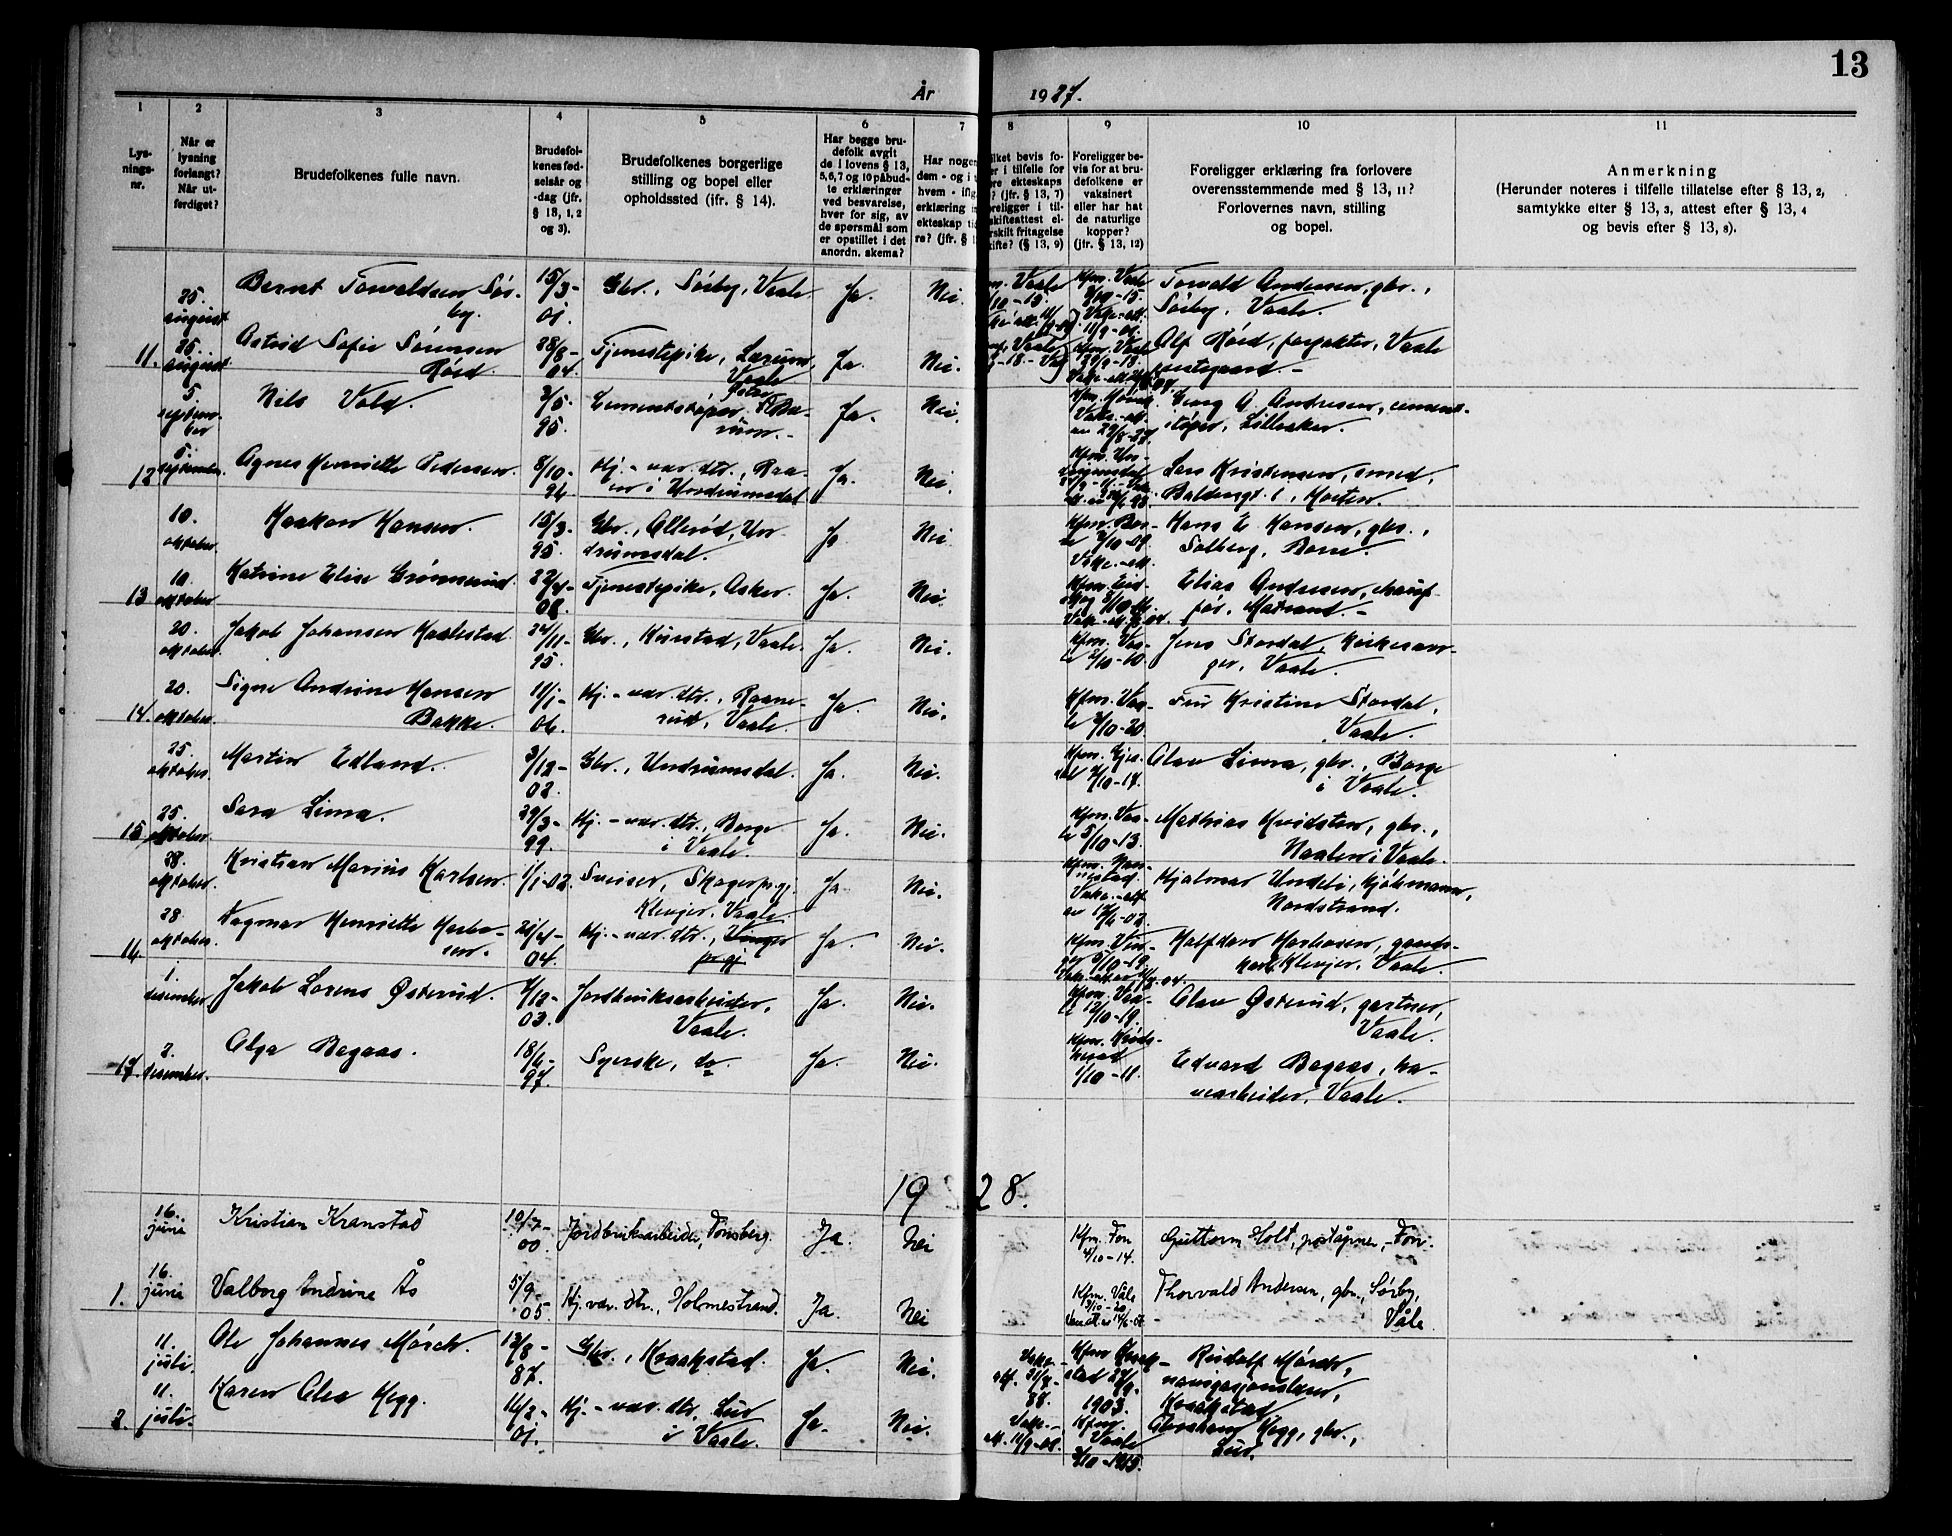 13
År 1927.
1 2 3 4 5 6 7 8 9 10 11
Lys-
nings-
nr.
Når er
lysning
forlangt?
Når ut-
ferdiget?
Brudefolkenes fulle navn.
Brudefol-
kenes fød-
selsår og
-dag (jfr.
§ 18, 1, 2
og 3).
Brudefolkenes borgerlige
stilling og bopel eller
opholdssted (jfr. § 14).
Har begge bru-
defolk avgit
de i lovens § 13,
5, 6, 7 og 10 påbud-
te erklæringer
ved besvarelse,
hver for sig, av
de spørsmål som
er opstillet i det
anordn. skema?
Har nogen
dem - og i
hvem - ifl.
erklæring
ekteskap ti
re? (jfr. §
lket bevis fo-
er i tilfelle for
re ekteskaps
? (jfr. § 13, 7)
oreligger i til-
skifteattest el-
rskilt fritagelse
kifte? (§ 13, 9)
Foreligger be-
vis for at bru-
defolkene er
vaksinert
eller har hat
de naturlige
kopper?
(jfr. § 13, 12)
Foreligger erklæring fra forlovere
overensstemmende med § 13, 11?
Forlovernes navn, stilling
og bopel.
Anmerkning
(Herunder noteres i tilfelle tillatelse efter § 13, 2,
samtykke efter § 13, 3, attest efter § 13, 4
og bevis efter § 13, 8).
25. august Bernt Torvaldsen Sør-
by. 15/3-01. Gbr., Sørby, Vaale. Ja. Nei. Kfm. Vaale Torvald Andersen, gbr.,
Sørby, Vaale.
11. 25. august Astrid Sofie Sörensen
Röed. 28/8-04. Tjenestepike, Lærum,
Vaale Ja. Nei. Alf Röed, forpakter, Vaale
prestegaard.
5. september Nils Vold. 2/5-95. Cementstøper, Ja. Nei. Georg A. Andresen, cement-
støper, Lilleaker.
12 5. september. Agnes Henriette Pedersen. 8/10-96 Hj.-vær. dtr., Raa-
en i Undrumsdal Ja. Nei. Lars Kristensen, smed,
Baldersgt. 1, Horten.
10. oktober. Haakon Hansen. 15/3-95. Gbr., Ollerød, Un-
drumsdal. Ja Nei. Kfm. Bor-
re 2/10-09.
Vaks.-att. Hans E Hansen, gbr.,
Solberg, Borre.
13 10. oktober Katrine Elise Grönnerud. 22/4-08. Tjenestepike, Asker. Ja. Nei. Elias Andersen, chauf-
før, Matrand-
20. oktober. Jakob Johansen Haalestad 24/11-95. Gbr., Kurstad, Vaale. Ja. Nei. Kfm. Vaa-
le 2/10-10. Jens Stordal, kirkesan-
ger, Vaale.
14. 20. oktober. Signe Andrine Hansen
Bakke. 11/1-06. Hj.-vær. dtr., Raane-
rud, Vaale. Ja. Nei. Kfm. Vaa-
le 3/10-20. Fru Kristine Stordal,
Vaale.
25. oktober. Martin Edland. 3/12-02. Gbr., Undrumsdal. Ja. Nei. Kfm. Gjes-
dal 7/10-17. Olav Lima, gbr., Borge
i Vaale.
15 25. oktober. Sara Lima. 29/3-99. Hj.-vær. dtr., Borge
i Vaale. Ja. Nei. Kfm. Vaa-
le 5/10-13. Mathias Kvidsten, gbr.,
Naalen i Vaale.
28. oktober. Kristian Marius Karlsen. 1/1-02. Sveiser, Skogerprgj.
Klevjer, Vaale. Ja. Nei. Hjalmar Undeli, kjøkmann,
Nordstrand.
16. 28. oktober. Dagmar Henriette 21/4-04. Hj.-vær. dtr., Vinger
prgj Ja. Nei. Kfm. Vin-
ger 5/10-19. Halfdan gaards-
karl, Klevjer, Vaale.
1. desember Jakob Lorens Østerud. 4/12-03. Jordbruksarbeider,
Vaale. Ja. Nei. Kfm. Vaa-
le 12/10-19. Olav Østerud, gartner,
Vaale.
17. 2. desember. Olga Bagaas. 18/6-97. Syerske, do Ja. Nei. Kfm. Kröds-
herad
1/10-11. Edvard Bagaas, ha-
vearbeider, Vaale.
1928.
16. juni Kristian Kranstad 10/7-00. Jordbruksarbeider, Tønsberg. Ja. Nei Kfm. Fon
4/10-14. Guttorm Holt, poståpner, Fon.
1. 16. juni Valborg Andrine Ås 5/9-05. Hj. vær. dtr., Holmestrand. Ja. Nei Kfm. Våle
3/10-20. Thorvald Andersen, gbr., Sørby,
Våle.
11. juli. Ole Johannes Mörch. 13/8-87. Gbr., Kraakstad. Ja. Nei. Vaks.-
att. 31/8-
88. Rudolf Mörch,
navigasjonslærer,
Kraakstad
2. 11. juli. Karen Olea Hegg. 16/2-01. Hj.-vær. dtr. Lur
i Vaale. Ja. Nei. Vaks.-
att. 11/9-01. Kfm.
Vaale
3/10-1915. Abraham Hegg, gbr.,
Lur.